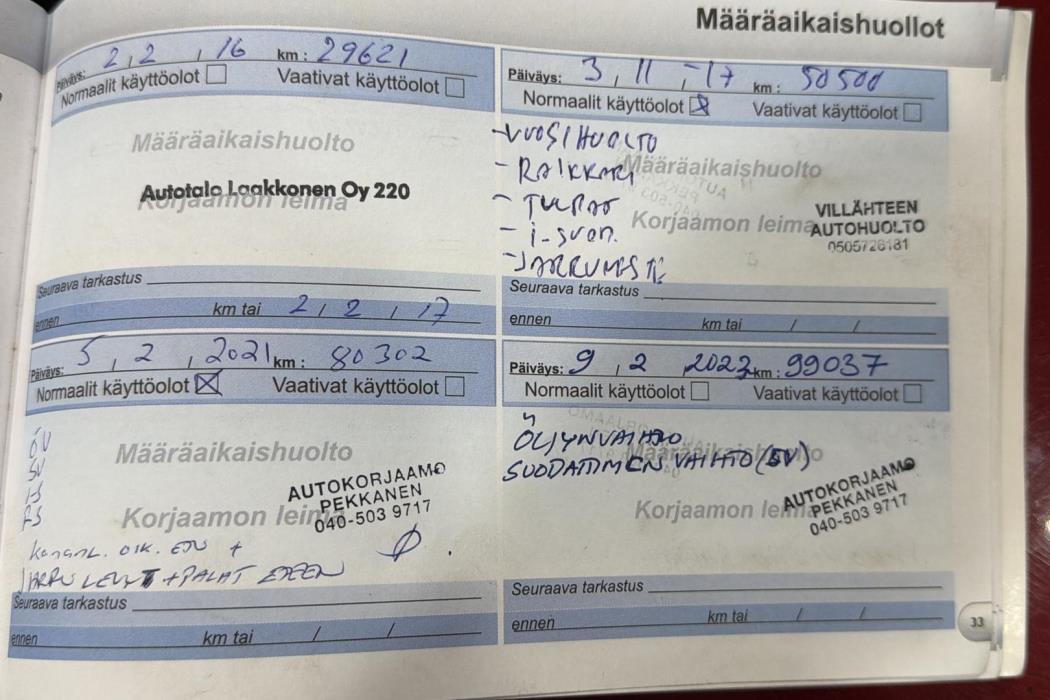 Määräaikaishuollot
Päiväys: 2,2,16 km: 29621
Normaalit käyttöolot Vaativat käyttöolot
Määräaikaishuolto
Autotalo Laakkonen Oy 220
Korjaamon leima
Seuraava tarkastus
ennen km tai 2/2/17
Päiväys: 3,11,-17 km: 50500
Normaalit käyttöolot Vaativat käyttöolot
-VUOSIHUOLTO
Määräaikaishuolto
- RAIKKARI
- TULPAT
Korjaamon leima
VILLÄHTEEN
AUTOHUOLTO
0505728181
- i-suod.
-JARRUNESTE
Seuraava tarkastus
ennen km tai / /
Päiväys: 5,2,2021 km: 80302
Normaalit käyttöolot Vaativat käyttöolot
ÖV
SV
IS
RS
Määräaikaishuolto
AUTOKORJAAMO
PEKKANEN
040-503 9717
Korjaamon leima
OIK. ETU +
JARRULEVYT + PALAT ETEEN
Seuraava tarkastus
ennen km tai / /
Päiväys: 9,2,2023 km: 99037
Normaalit käyttöolot Vaativat käyttöolot
ÖLJYNVAIHTO
Määräaikaishuolto
SUODATTIMEN VAIHTO (SV)
AUTOKORJAAMO
PEKKANEN
040-503 9717
Korjaamon leima
Seuraava tarkastus
ennen km tai / /
33